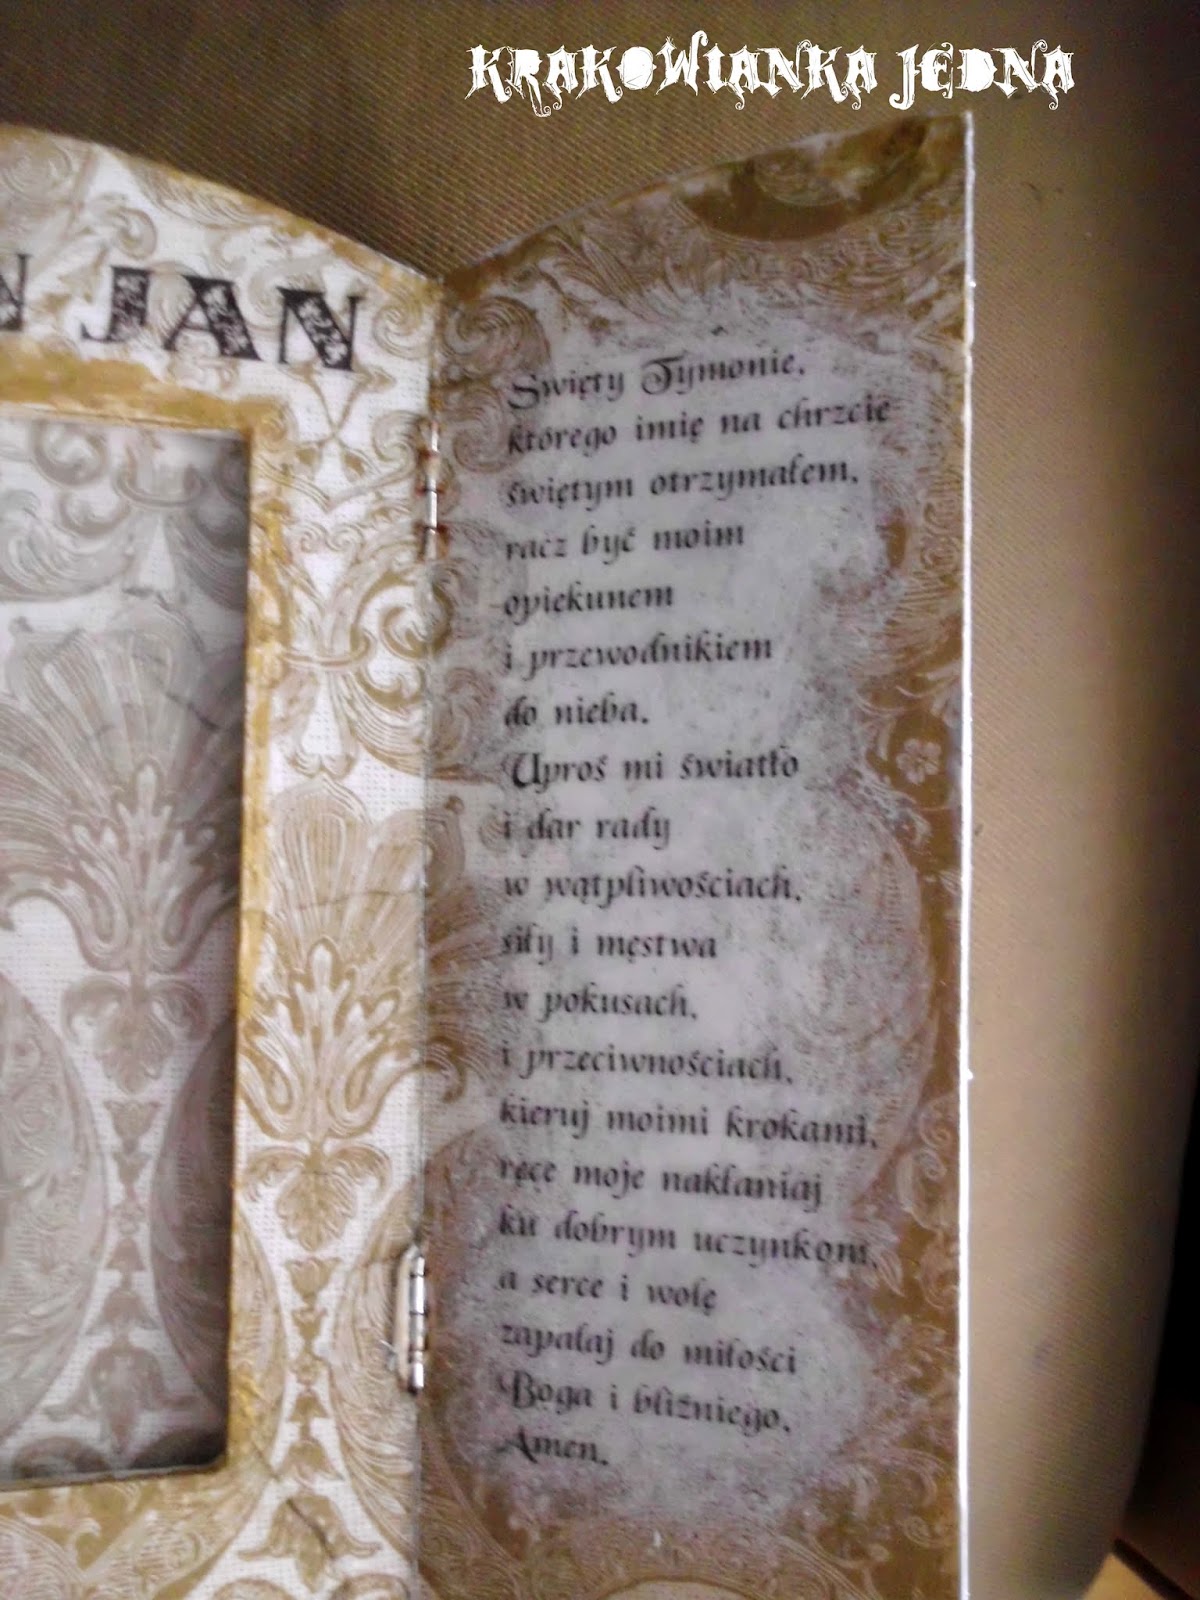 KRAKOWIANKA JEDNA
N JAN
Święty Tymonie,
którego imię na chrzcie
świętym otrzymałem,
racz być moim
opiekunem
i przewodnikiem
do nieba.
Uproś mi światło
i dar rady
w wątpliwościach,
siły i męstwa
w pokusach,
i przeciwnościach,
kieruj moimi krokami,
ręce moje nakłaniaj
ku dobrym uczynkom,
a serce i wolę
zapalaj do miłości
Boga i bliźniego.
Amen.